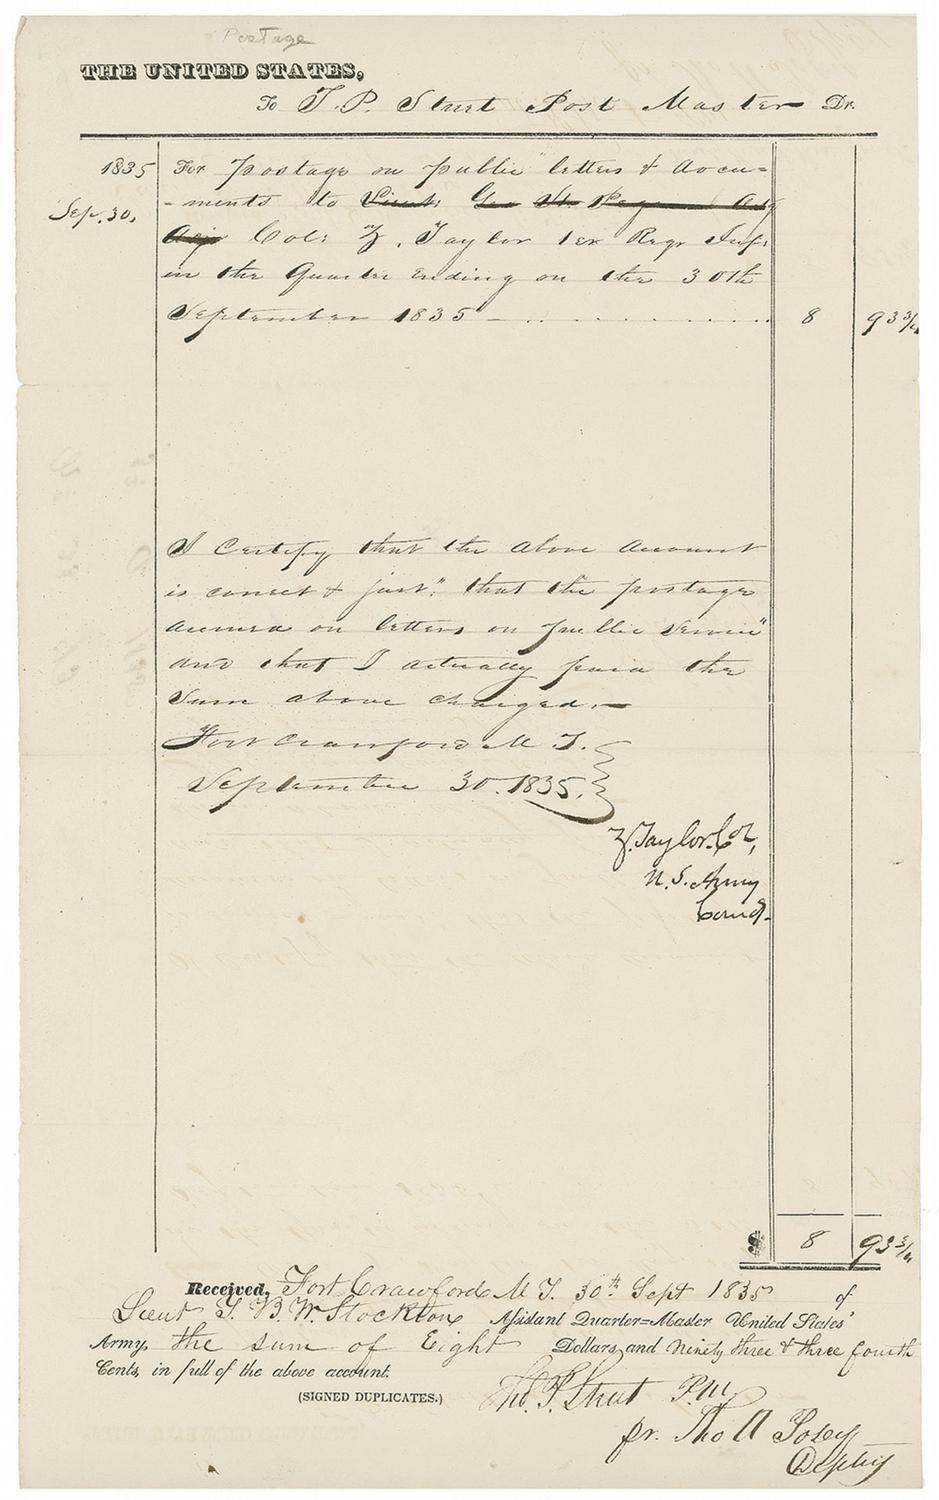 Postage
THE UNITED STATES,
To T. P. Street Post Master Dr.
1835 For postage on public letters & docu-
Sep. 30, -ments to Lieut:
Col: Z. Taylor 1er Regt Inf:
in the Quarter Ending on the 30th
September 1835 8 93 3/4
I Certify that the above account
is correct & just": that the postage
accrued on letters on public service"
and that I actually paid the
Sum above charged.
Fort Crawford M T.
September 30. 1835.
Z. Taylor. Col,
U. S. Army
Comdg.
$ 8 93 3/4
Received, Fort Crawford M T. 30th Sept 1835 of
Lieut T. B. W. Stockton Assistant Quarter-Master United States'
Army, the sum of Eight Dollars, and Ninety three & three fourth
Cents, in full of the above account.
(SIGNED DUPLICATES.)
Tho. P. Street P.M.
pr. Tho A Posey
Deputy